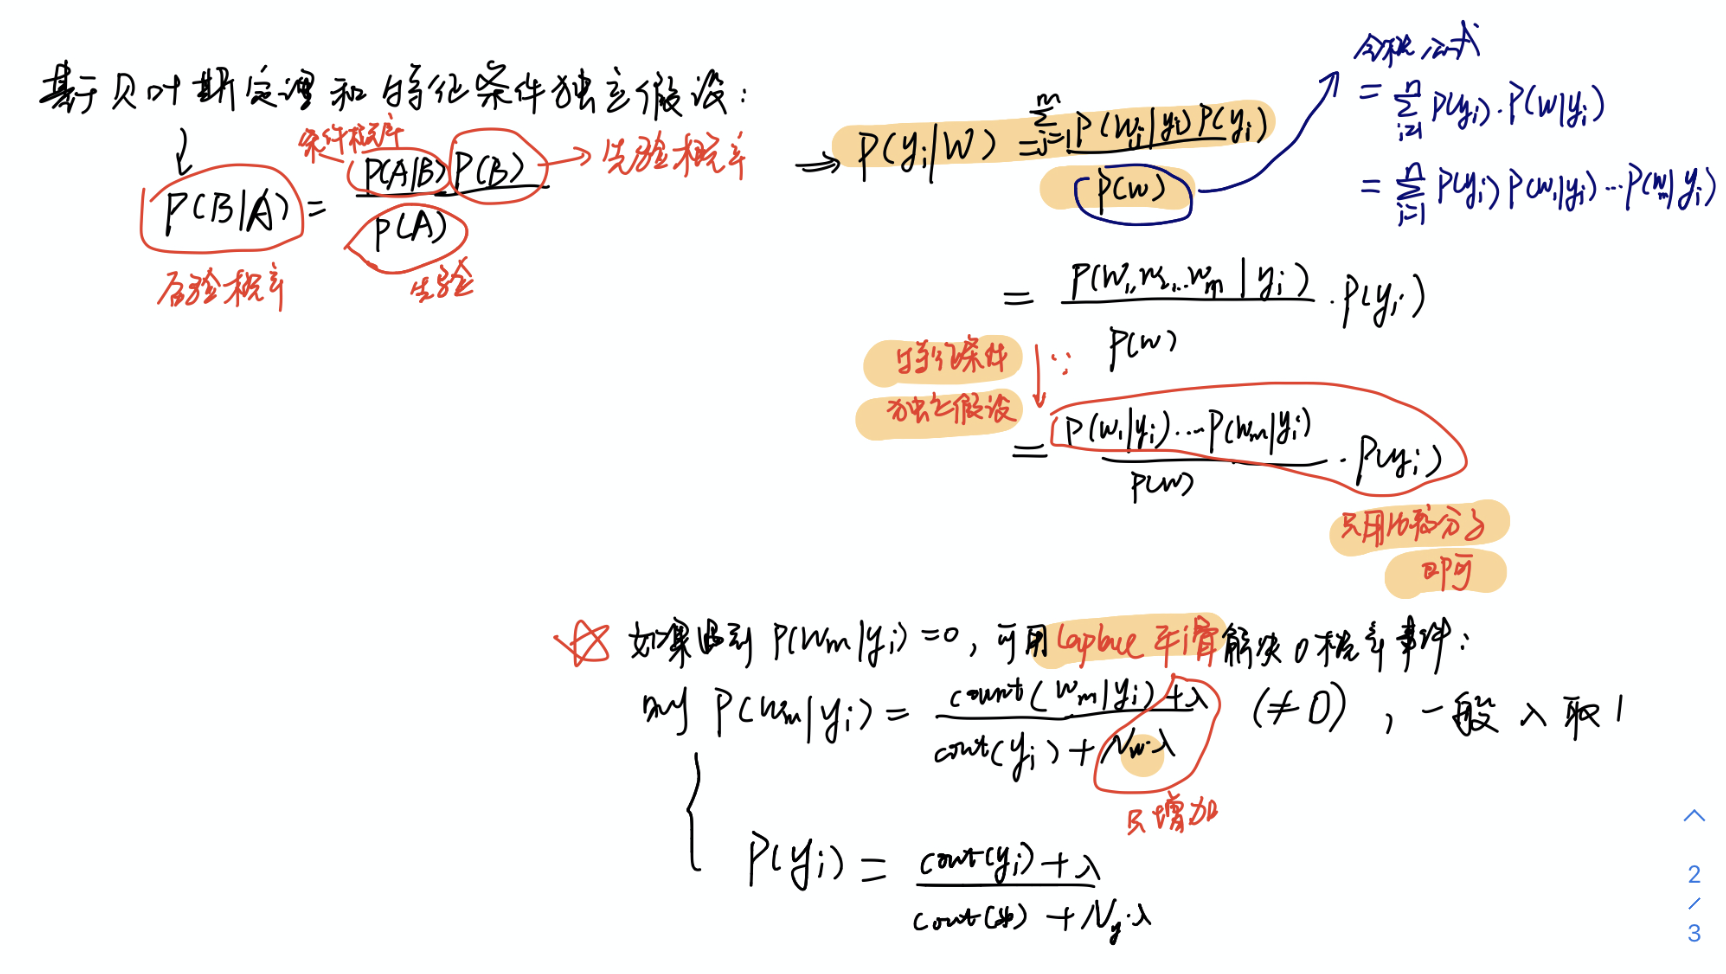 基于贝叶斯定理和特征条件独立假设：
条件概率
P(B|A) = P(A|B) P(B) / P(A)
先验概率
后验概率
先验
P(yi|W) = m∑j=1 P(wj|yi) P(yi) / P(w)
全概公式
= n∑i=1 P(yi)·P(w|yi)
= n∑i=1 P(yi) P(w1|yi)…P(wm|yi)
= P(w1,w2,…wm|yi) / P(w) · P(yi)
特征条件
独立假设
∵
= P(w1|yi)…P(wm|yi) / P(w) · P(yi)
只用比较分子
即可
☆ 如果遇到 P(wm|yi)=0，可用Laplace平滑解决0概率事件：
则 P(wm|yi) = count(wm|yi)+λ / count(yi)+Nw·λ (≠0)，一般λ取1
只增加
P(yi) = count(yi)+λ / +Ny·λ
2
/
3